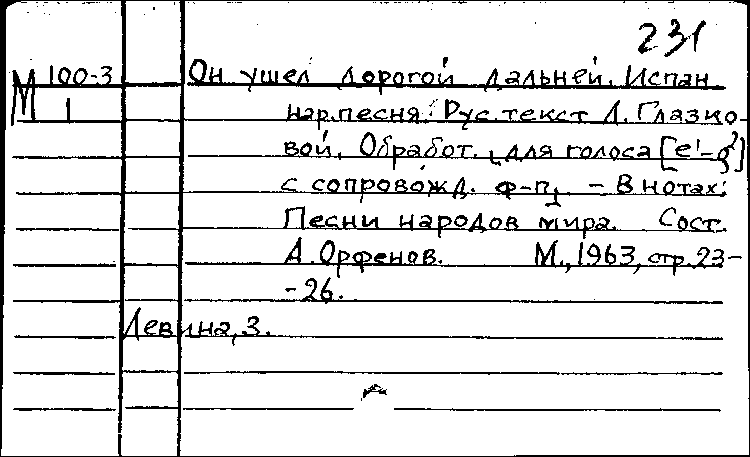 231
М 100-3 Он ушел дорогой дальней. Испан.
1 нар. песня. Рус. текст Л. Глазко-
вой. Обработ. для голоса [e¹-g²]
с сопровожд. ф-п. - В нотах:
Песни народов мира. Сост.
А. Орфенов. М., 1963, стр. 23-
-26.
Левина, З.